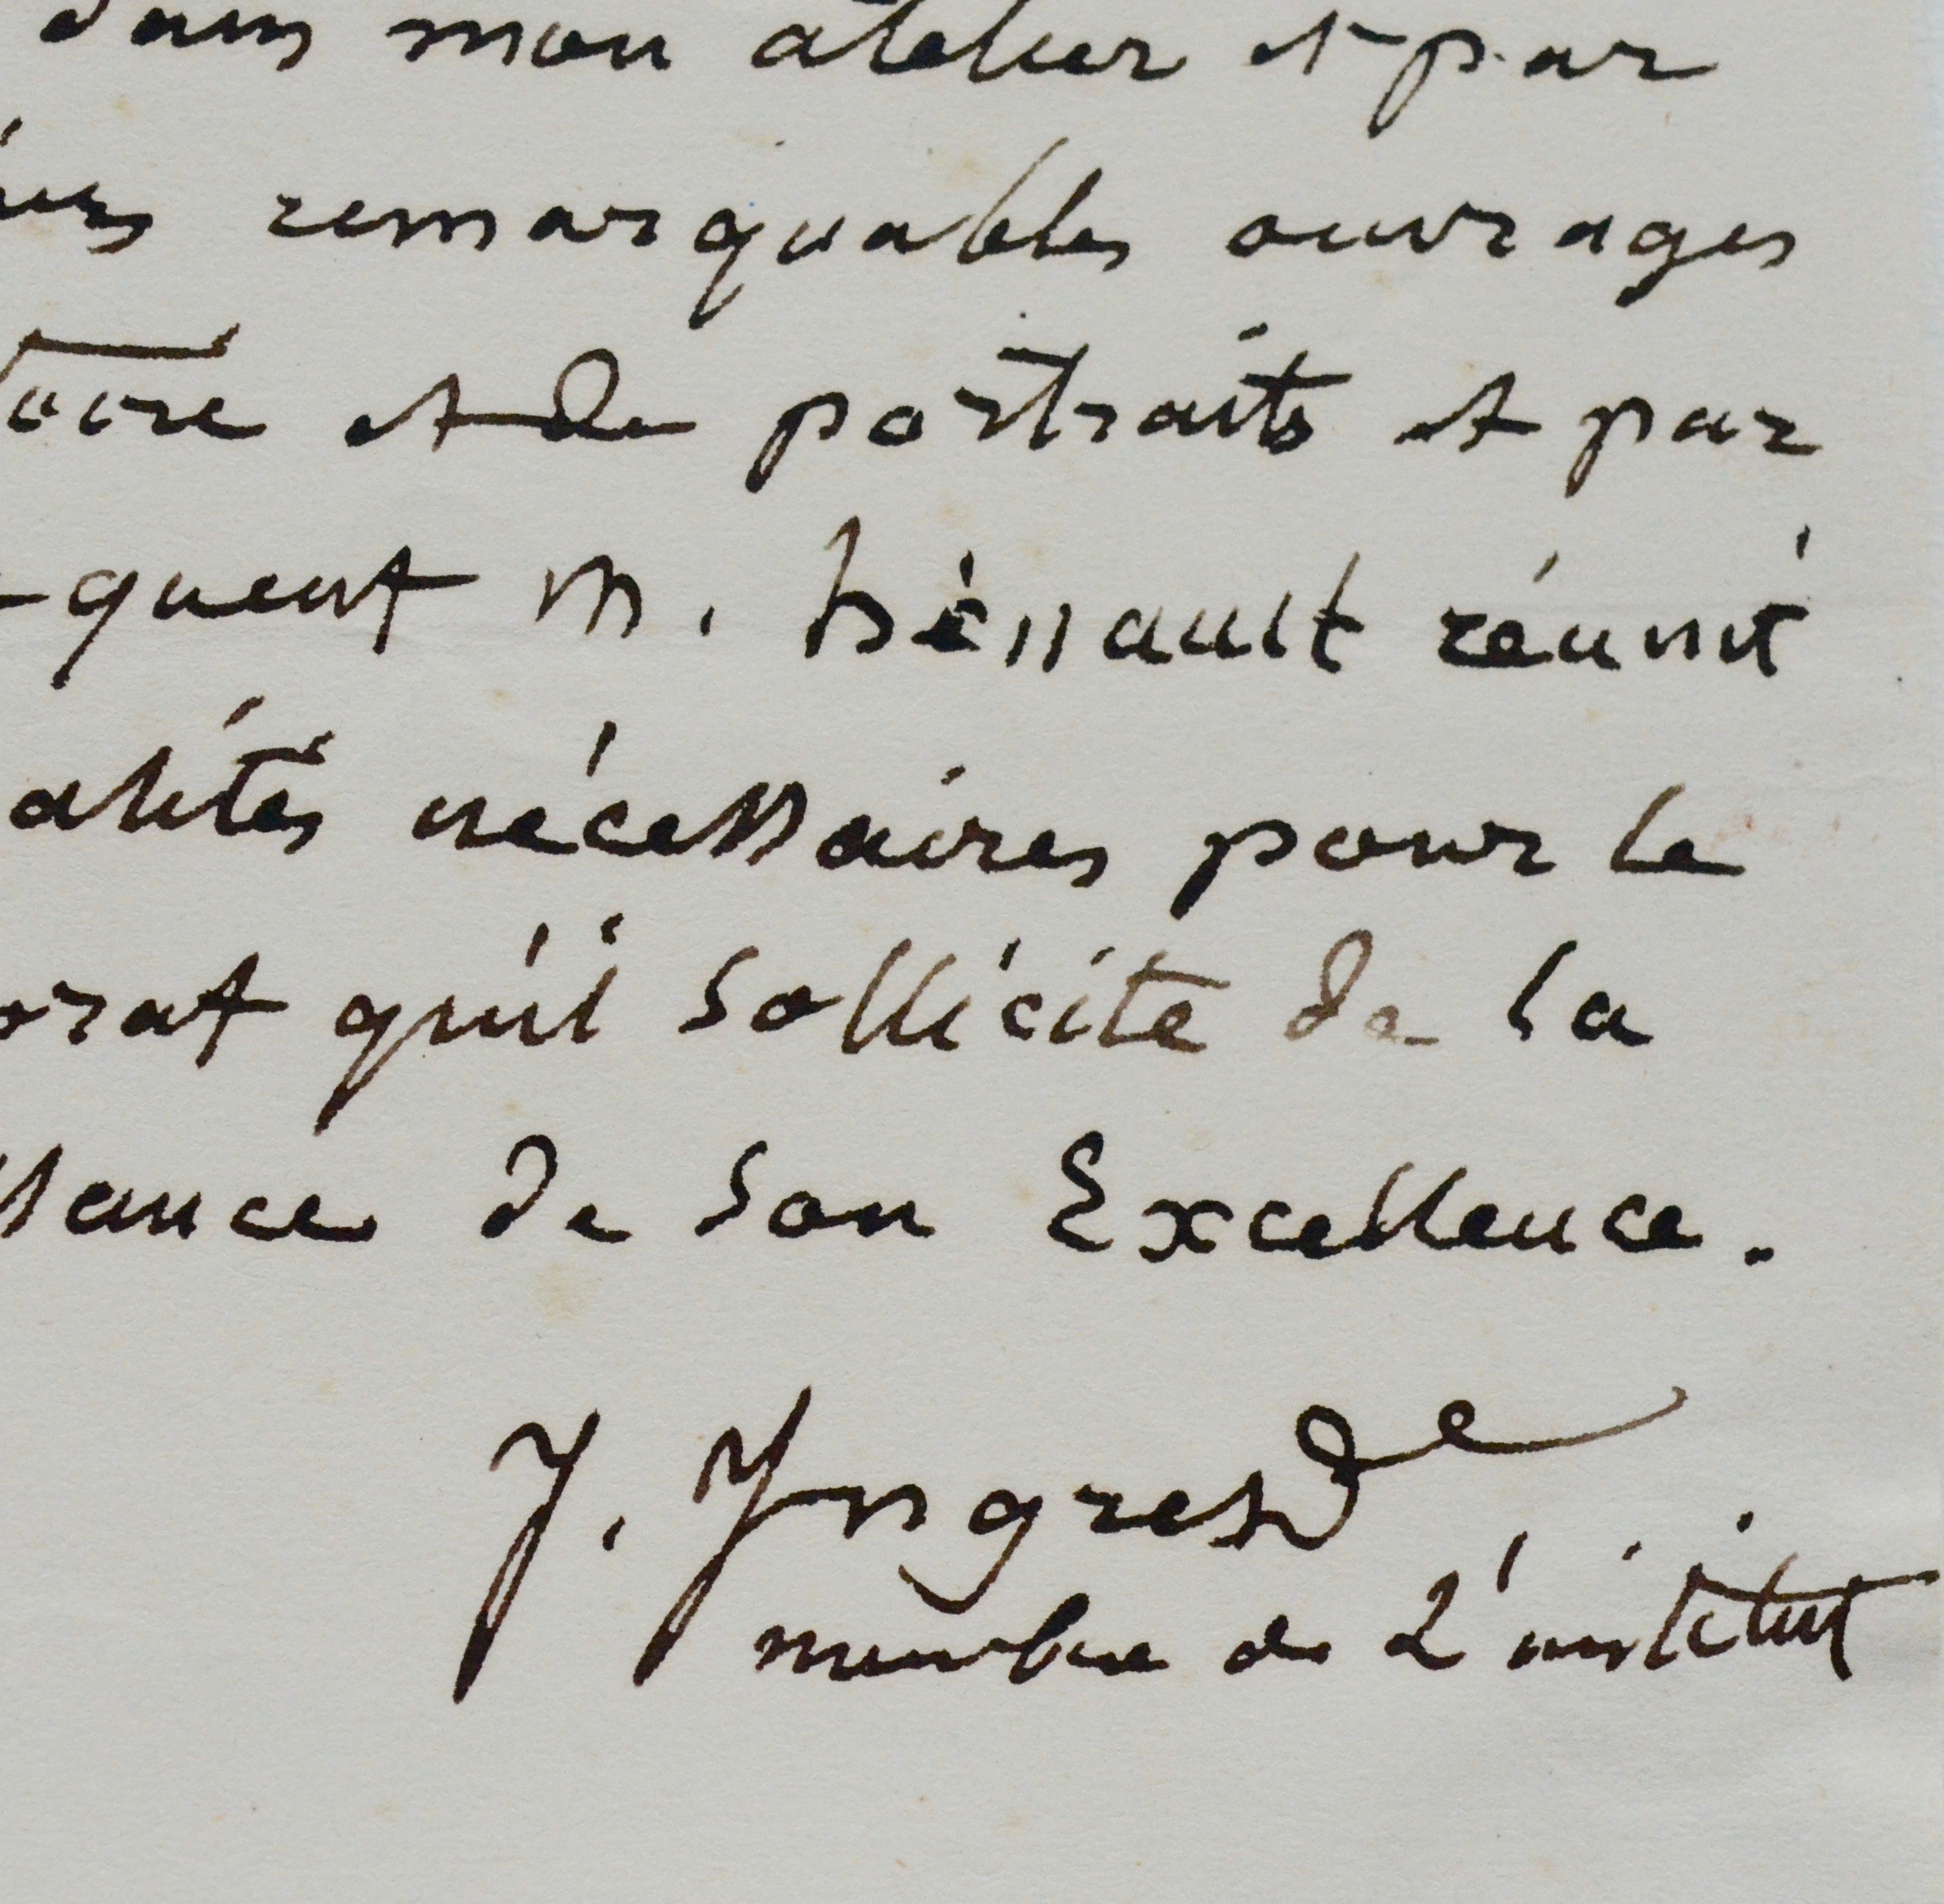 dans mon atelier et par
remarquables ouvrages
toire et de portraits et par
quent M. hénault réunit
alités nécessaires pour le
orat qu'il sollicite de la
sance de Son Excellence.
J. Ingres
membre de L'institut